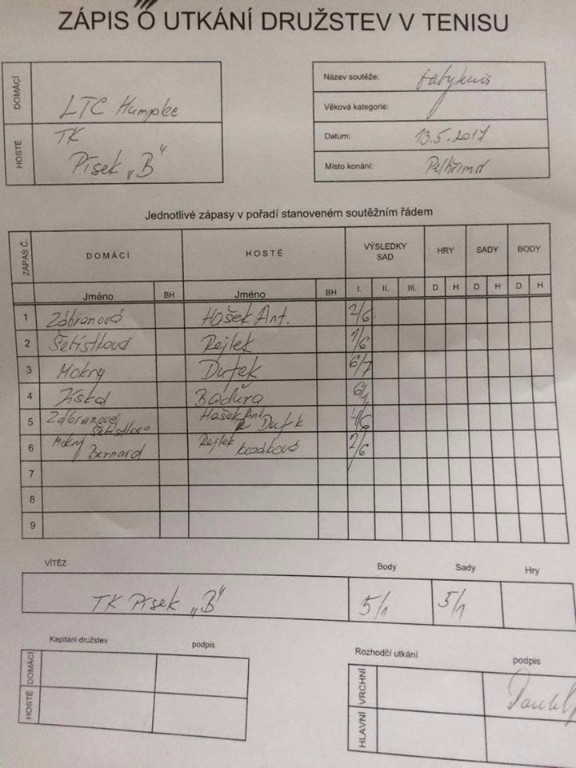 ZÁPIS O UTKÁNÍ DRUŽSTEV V TENISU
DOMÁCÍ LTC Humpolec
HOSTÉ TK Písek „B"
Název soutěže: babytenis
Věková kategorie:
Datum: 13.5.2017
Místo konání: Pelhřimov
Jednotlivé zápasy v pořadí stanoveném soutěžním řádem
ZÁPAS Č. DOMÁCÍ HOSTÉ VÝSLEDKY SAD HRY SADY BODY
Jméno BH Jméno BH I. II. III. D H D H D H
1 Zábranová Hošek Ant. 2/6
2 Šetístková Rejlek 1/6
3 Mokrý Dufek 6/7
4 Jiskal Baďura 6/1
5 Zábranová Šetístková Hošek Ant Dufek 4/6
6 Mokrý Bernard Rejlek 2/6
7
8
9
VÍTĚZ Body Sady Hry
TK Písek „B" 5/1 5/1
Kapitáni družstev podpis
DOMÁCÍ
HOSTÉ
Rozhodčí utkání podpis
VRCHNÍ
HLAVNÍ